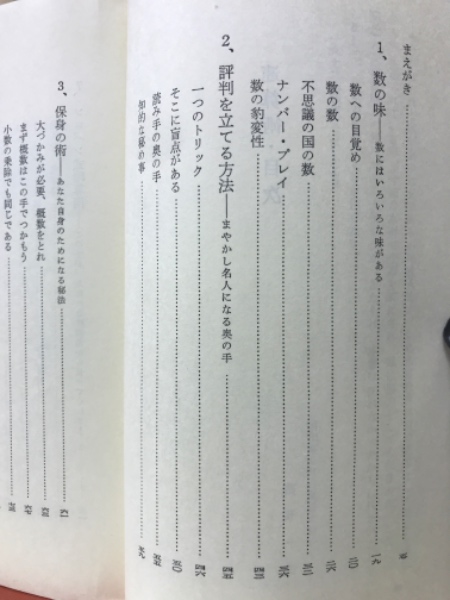 まえがき……五
1、数の味――数にはいろいろな味がある……一九
数への目覚め……二〇
数の数……二六
不思議の国の数……三二
ナンバー・プレイ……三六
数の豹変性……四三
2、評判を立てる方法――まやかし名人になる奥の手……四五
一つのトリック……四六
そこに盲点がある……五〇
読み手の奥の手……五五
知的な秘め事……五九
3、保身の術――あなた自身のためになる秘法……六一
大づかみが必要、概数をとれ
まず概数はこの手でつかもう
小数の乗除でも同じである